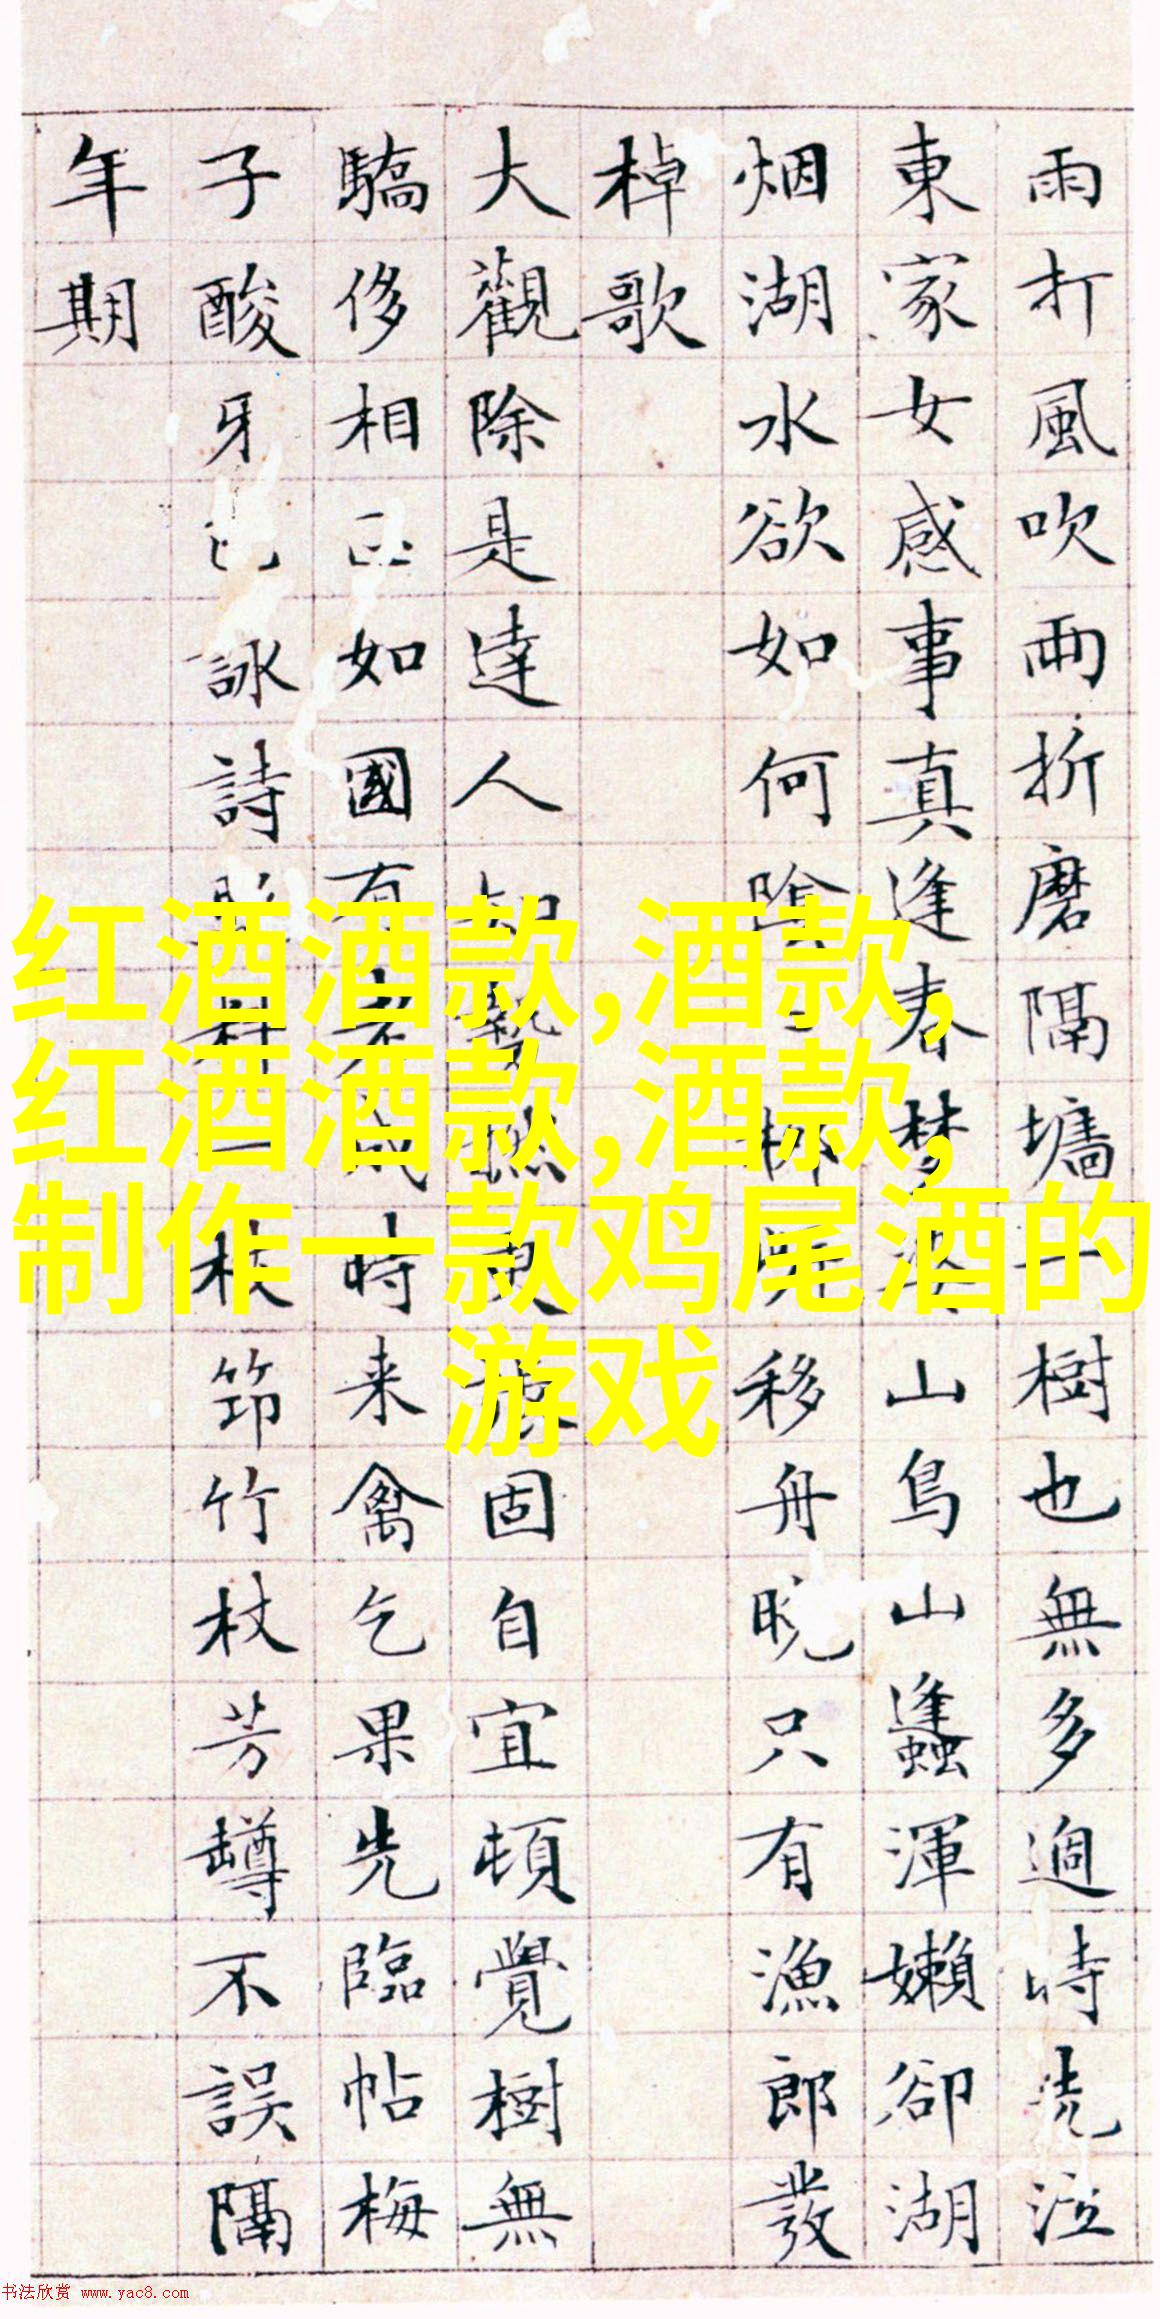 雨打風吹雨折磨隔墻一樹也無多過時洗泣
東家女感事真逢春梦山鳥山蠭渾嬾卻湖
烟湖水欲如何陰移舟晚只有漁郎發
棹歌
大觀除是達人知固自宜頓覺樹無
驕侈相如國有老成時来禽乞果先臨帖梅
子酸牙詠詩村一枝筇竹杖芳罇不誤隔
年期
红酒酒款,酒款,
红酒酒款,酒款,
制作一款鸡尾酒的
游戏
书法欣赏 www.yac8.com